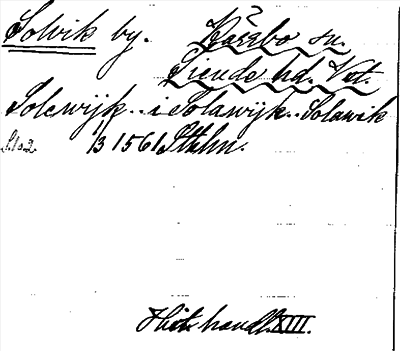 Solvik by. Kärrbo sn.
Siende hd. Vstm.
Solewijk.. i Solawijk.. Solawik
13/1 1561 Sthlm.
Hist. handl. XIII.